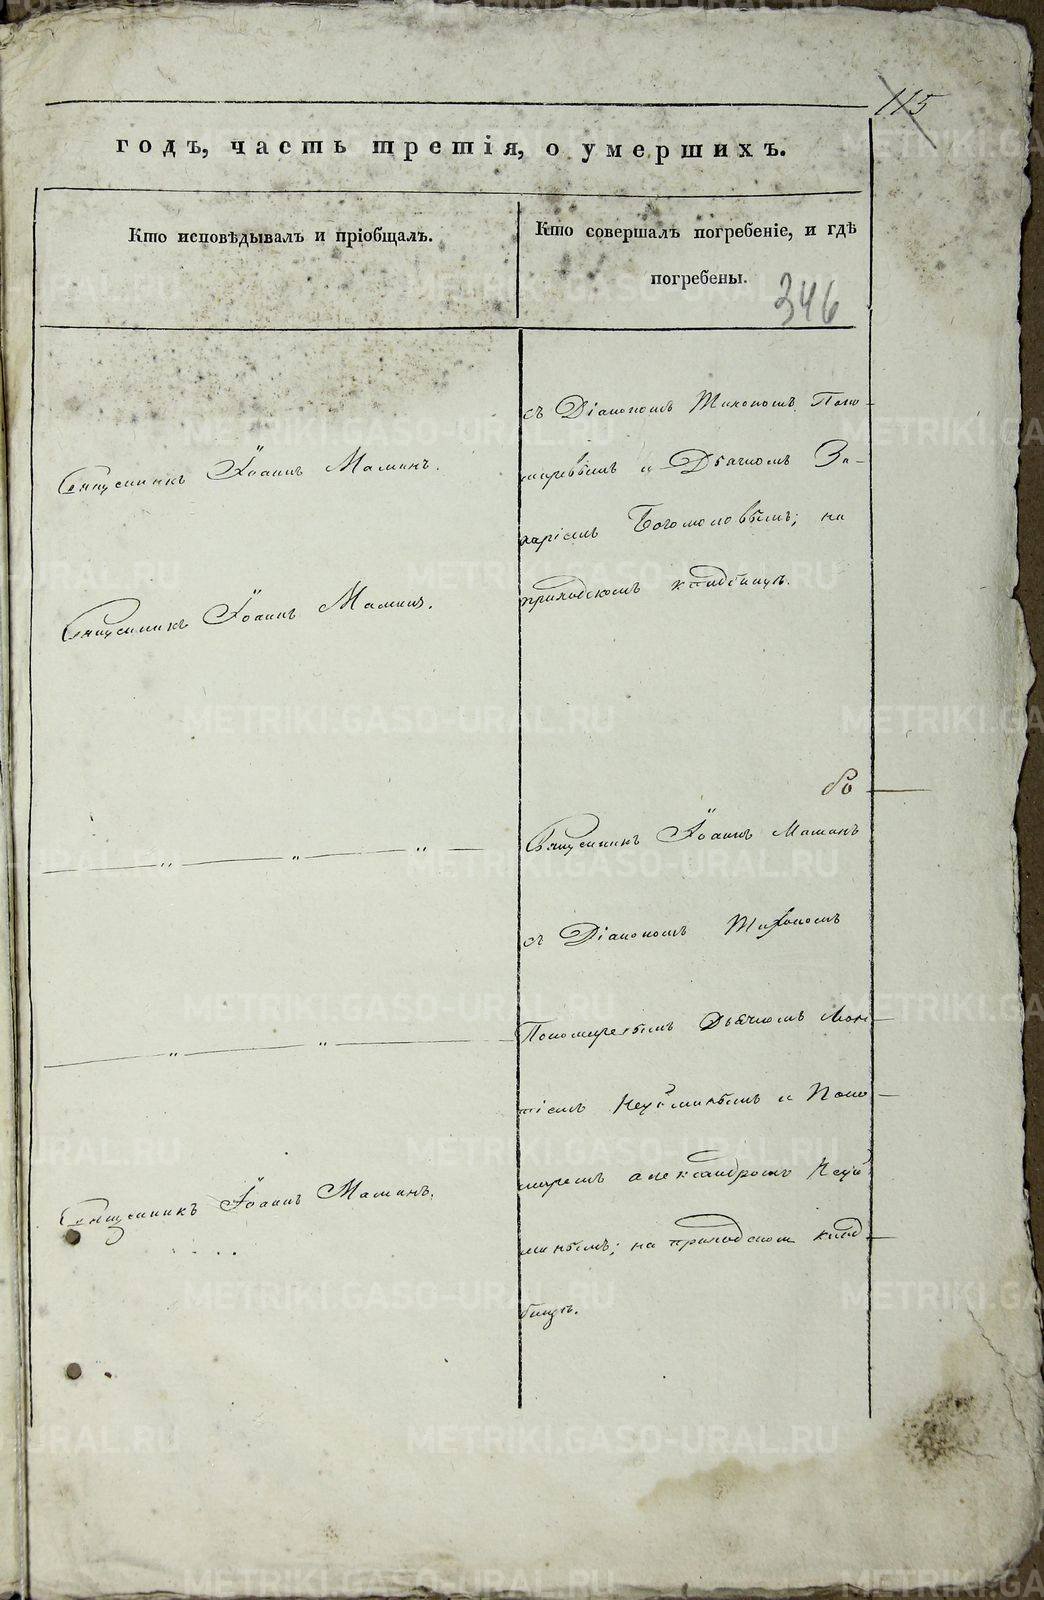 115
годъ, часть третія, о умершихъ.
Кто исповѣдывалъ и пріобщалъ.
Кто совершалъ погребеніе, и гдѣ
погребены.
346
Священникъ Іоаннъ Маминъ.
Священникъ Іоаннъ Маминъ.
Священникъ Іоаннъ Маминъ.
съ Діакономъ Тихономъ Поно-
маревымъ и Дьячкомъ За-
харіемъ Богомоловымъ; на
приходскомъ кладбищѣ.
Священникъ Іоаннъ Маминъ
съ Діакономъ Тихономъ
Пономаревымъ Дьячкомъ
и Поно-
маремъ Александромъ
на приходском клад-
бищѣ.
METRIKI.GASO-URAL.RU